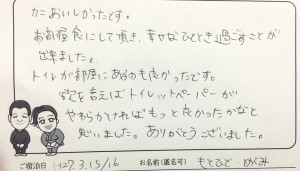 カニおいしかったです。
お部屋食にして頂き、幸せなひととき過ごすことが
出来ました。
トイレが部屋にあるのも良かったです。
欲を言えばトイレットペーパーが
やわらかければもっと良かったかなと
思いました。ありがとうございました。
ご宿泊日 H27.3.15/16 お名前(匿名可) もとひで めぐみ